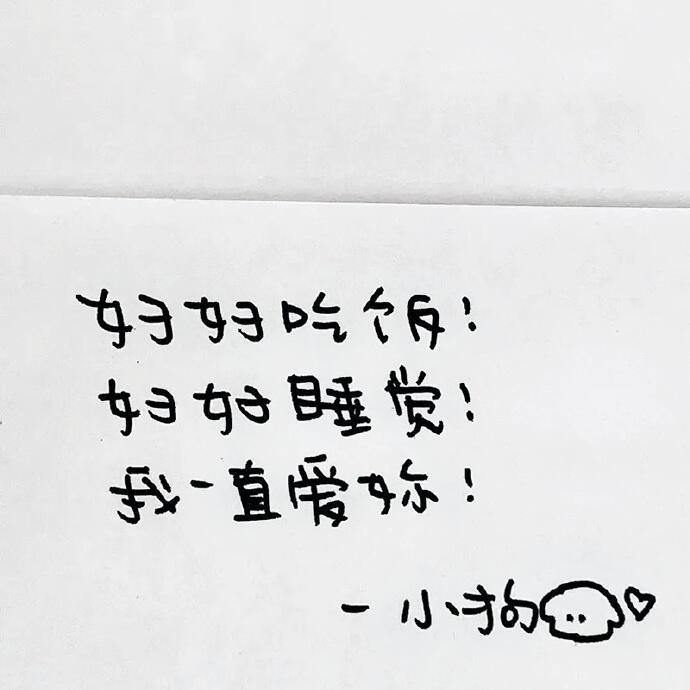 好好吃饭!
好好睡觉!
我一直爱妳!
-小狗